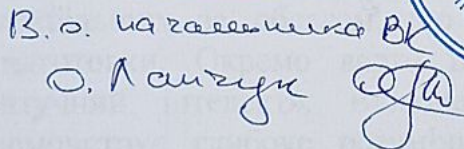 В.о. начальника ВК
О. Панчук